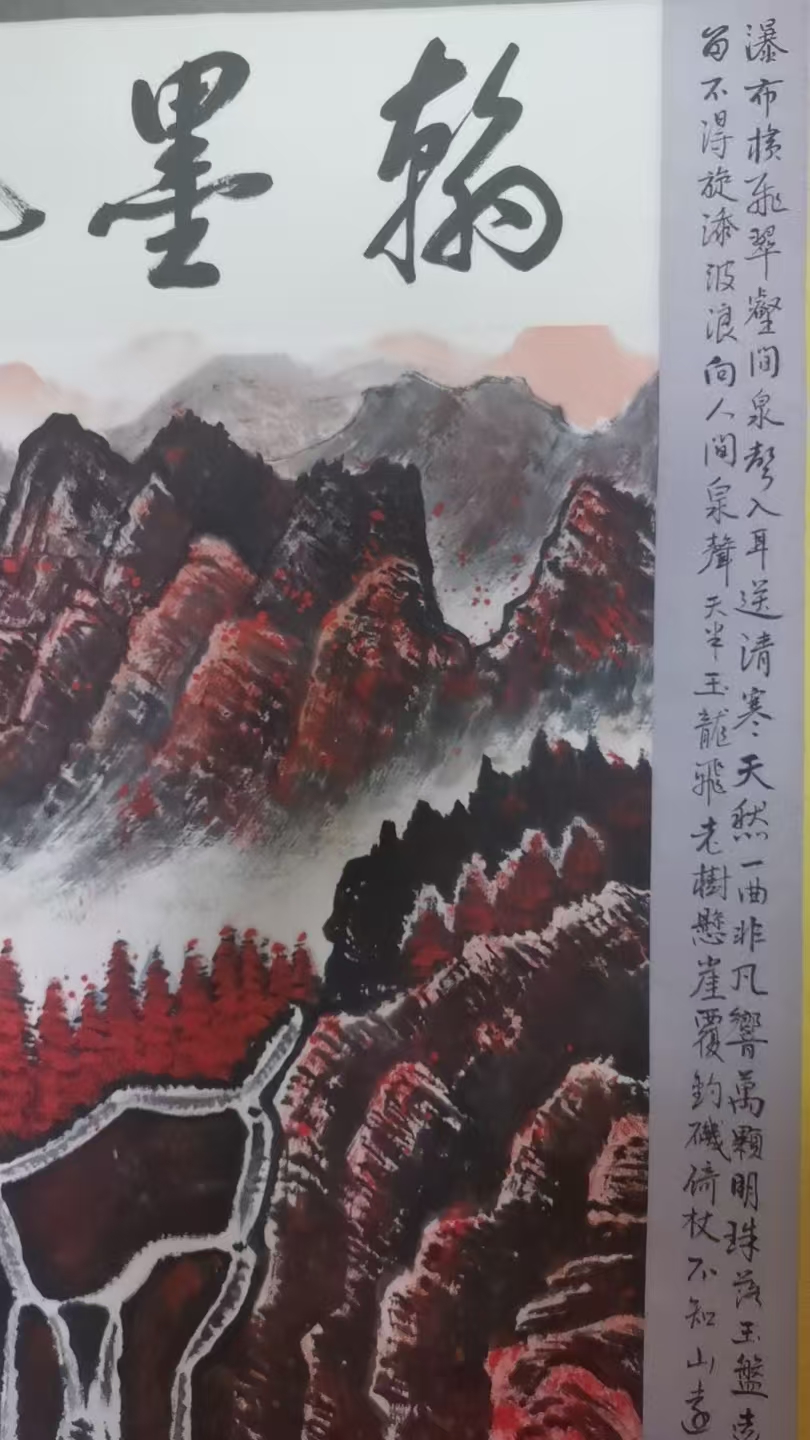 翰墨
瀑布橫飛翠壑間泉聲入耳送清寒天然一曲非凡響萬顆明珠落玉盤
留不得旋添波浪向人間泉聲天半玉龍飛老樹懸崖覆釣磯倚杖不知山遠